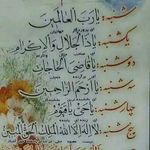 شنبه: یا رب العالمین
یکشنبه: یا ذا الجلال و الاکرام
دوشنبه: یا قاضی الحاجات
سه شنبه: یا ارحم الراحمین
چهارشنبه: یا حی یا قیوم
پنج شنبه: لا اله الا الله الملک الحق المبین